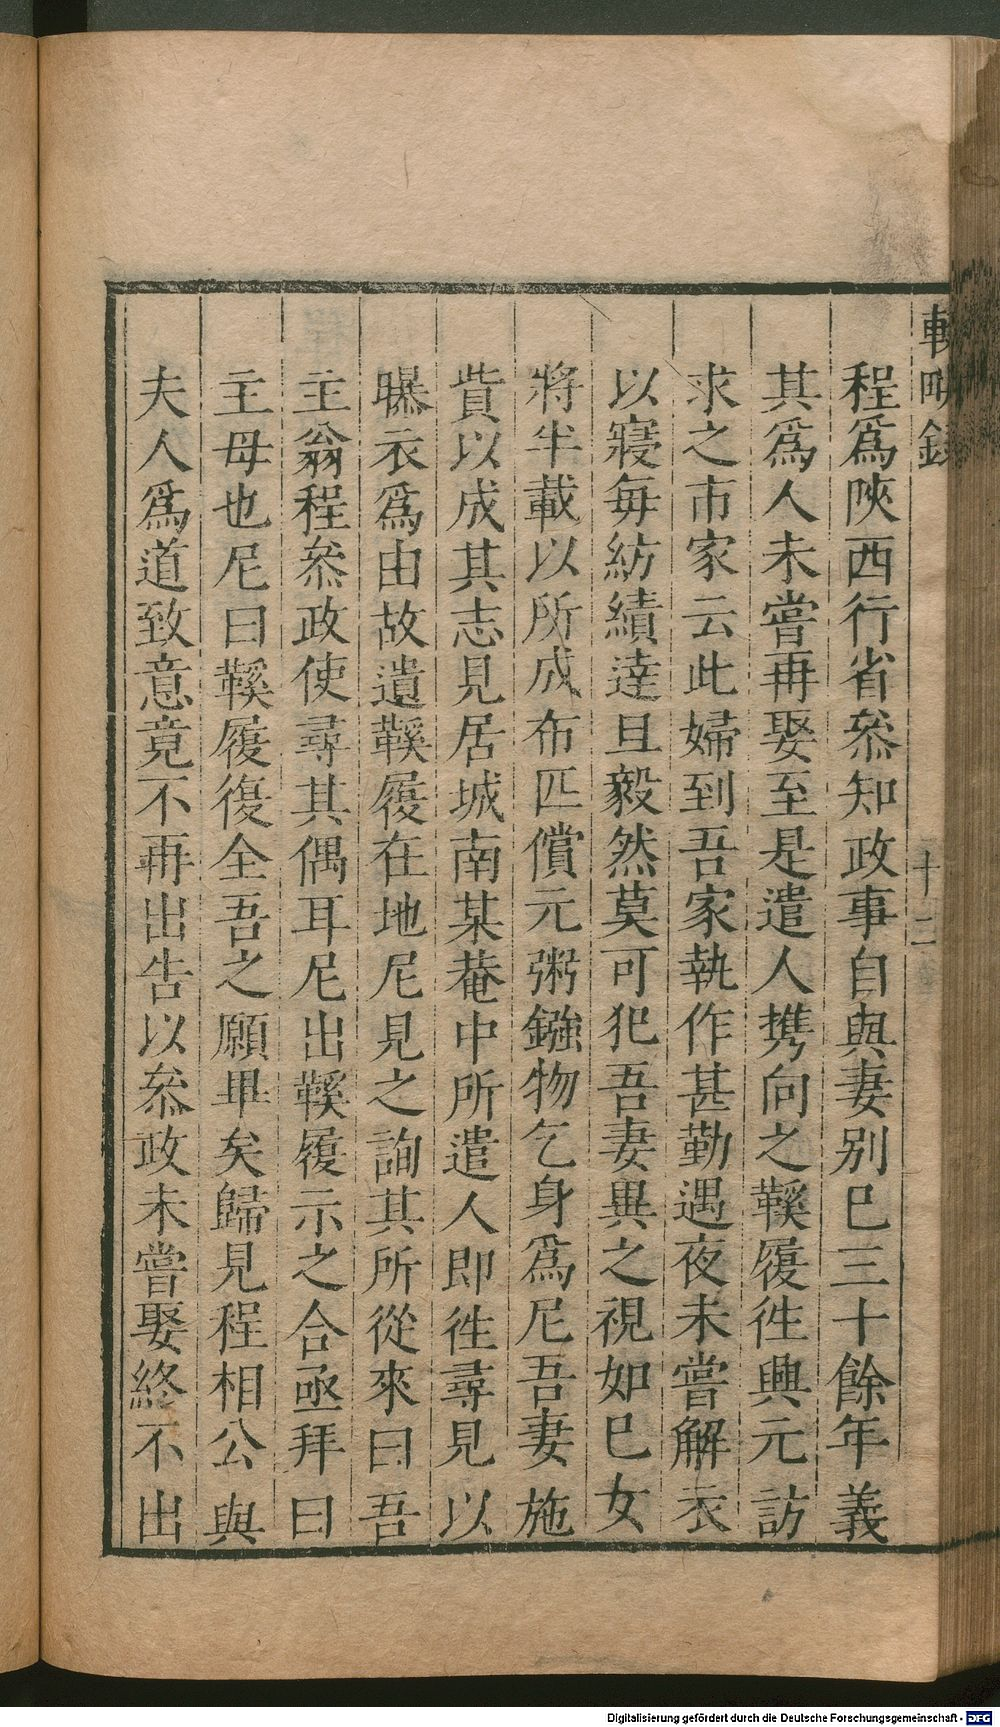 輟畊錄
十二
程爲陜西行省叅知政事自與妻别巳三十餘年義
其爲人未嘗再娶至是遣人携向之鞵履徃興元訪
求之市家云此婦到吾家執作甚勤遇夜未嘗解衣
以寢每紡績達旦毅然莫可犯吾妻異之視如巳女
將半載以所成布匹償元粥鏹物乞身爲尼吾妻施
貲以成其志見居城南某菴中所遣人即徃尋見以
曝衣爲由故遺鞵履在地尼見之詢其所從來曰吾
主翁程叅政使尋其偶耳尼出鞵履示之合亟拜曰
主母也尼曰鞵履復全吾之願畢矣歸見程相公與
夫人爲道致意竟不再出告以叅政未嘗娶終不出
Digitalisierung gefördert durch die Deutsche Forschungsgemeinschaft - DFG